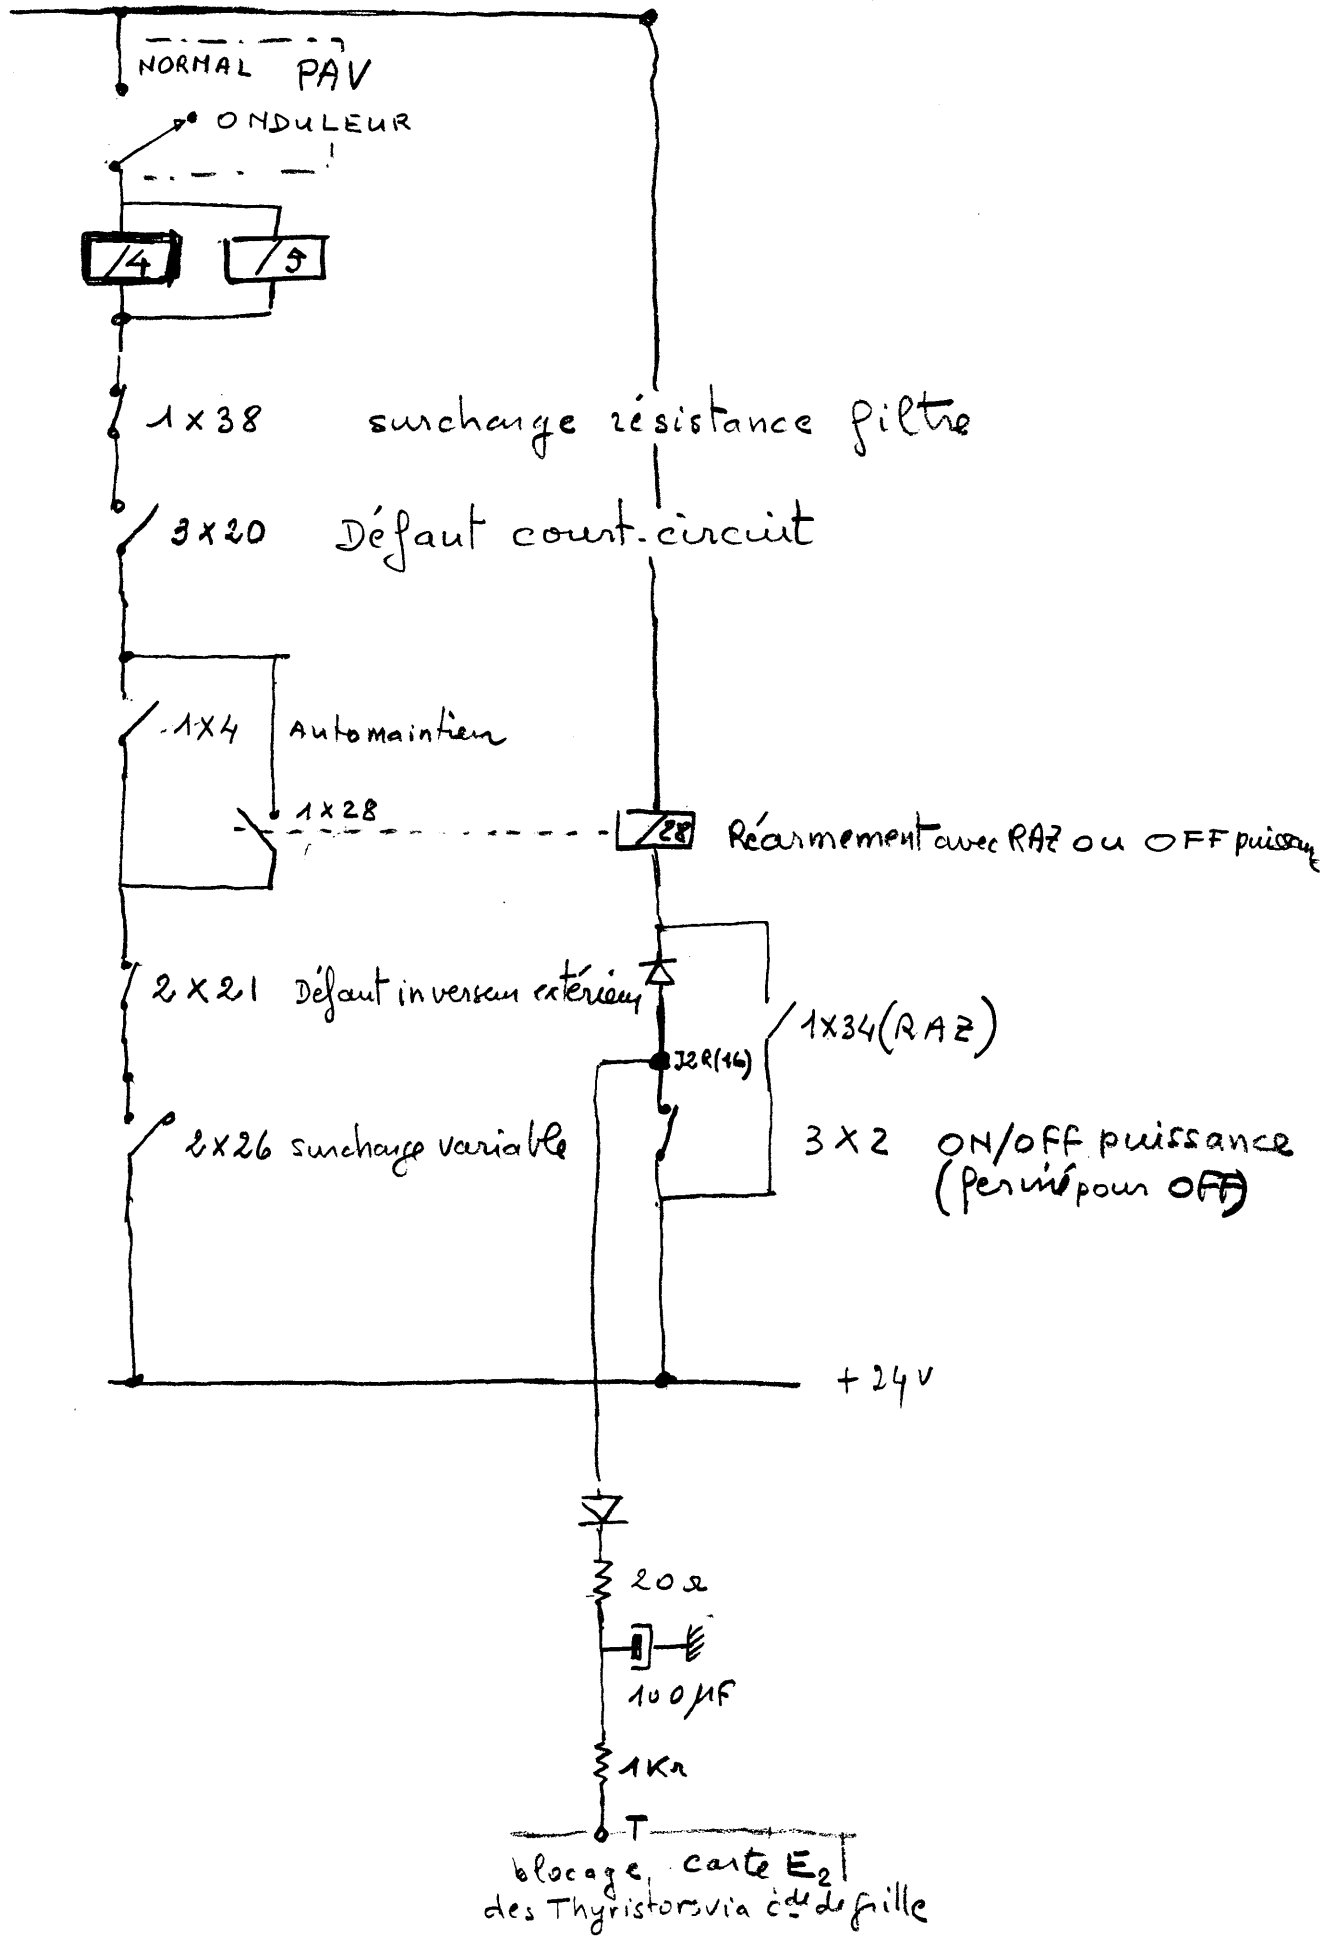 NORMAL PAV
ONDULEUR
/4 /5
1X38 surcharge résistance filtre
3X20 Défaut court-circuit
1X4 Automaintien
1X28
/28 Réarmement avec RAZ ou OFF puissan
2X21 Défaut inverseur extérieur
1X34(RAZ)
J2R(16)
2X26 surcharge variable
3X2 ON/OFF puissance
(fermé pour OFF)
+24V
20Ω
100µF
1KΩ
T
blocage, carte E2
des Thyristors via cde de grille